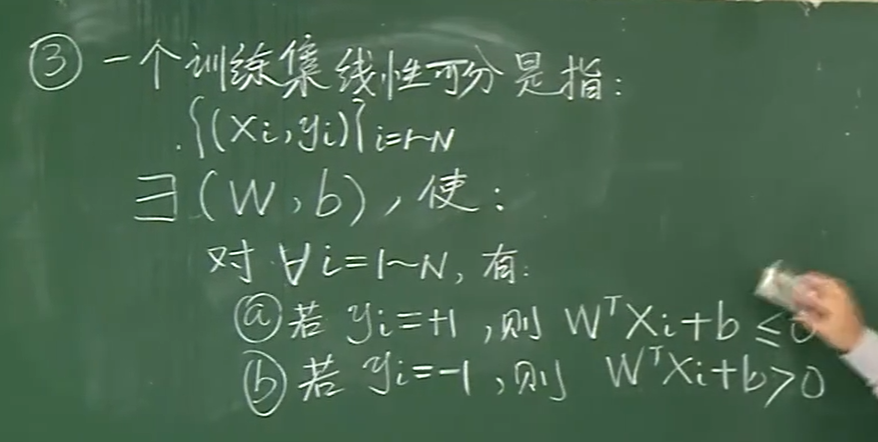 ③一个训练集线性可分是指:
{(Xi,yi)}i=1~N
∃(W,b),使:
对∀i=1~N,有:
ⓐ若yi=+1,则 WᵀXi+b≤0
ⓑ若yi=-1,则 WᵀXi+b>0